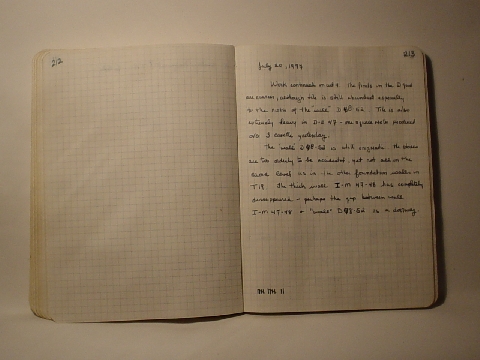 212
213
July 20, 1977
Work commenced at 7. The finds in the D grid
are sparse, although tile is still abundant especially
to the north of the "wall" D 48-52. Tile is also
extremely heavy in D-E 47 - one square metre produced
over 3 yesterday.
The "wall" D48-52 is still enigmatic. The stones
are too orderly to be accidental, yet not on the
same level as the other foundation walls in
T19. The thick wall I-M 47-48 has completely
disappeared - perhaps the gap between wall
I-M 47-48 + "wall" D48-52 is a doorway.